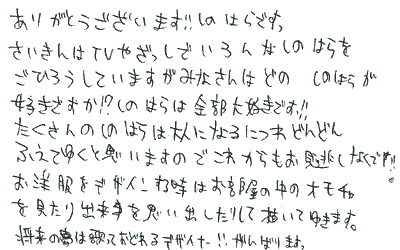 ありがとうございます!!しのはらです。
さいきんはTVやざっしでいろんなしのはらを
ごひろうしていますがみなさんはどの しのはらが
好きですか!?しのはらは全部大好きです!!
たくさんのしのはらは大人になるにつれどんどん
ふえてゆくと思いますのでこれからもお見逃しなくです!!
お洋服をデザインする時はお部屋の中のオモチャ
を見たり出来事を思い出したりして描いてゆきます。
将来の夢は歌っておどれるデザイナー!!がんばります。